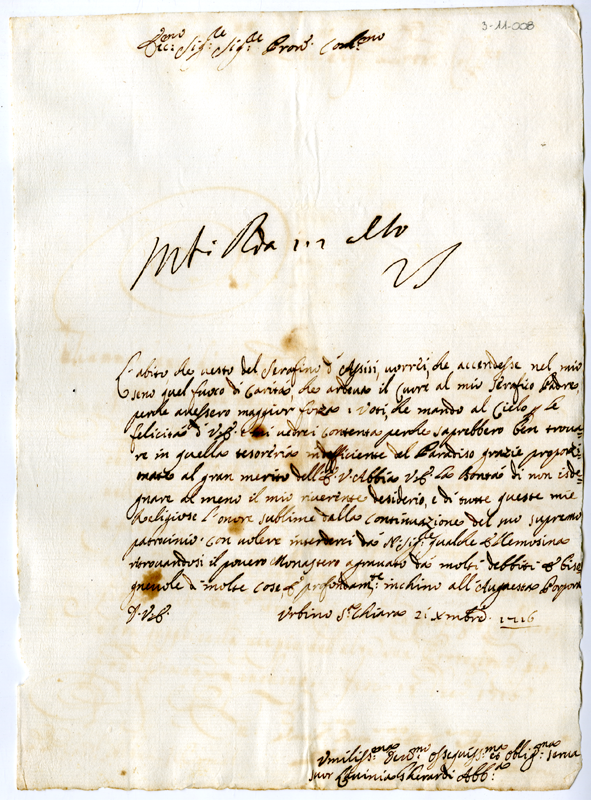 3-11-008
Sig:re Sig:re Pron: Col:mo
L'abito che vesto del Serafino d'Assisi, vorrei, che accendesse nel mio
seno quel fuoco di Carità, che ardeva il Cuore al mio Serafico Padre,
perche avessero maggior forza i Voti, che mando al Cielo le
felicità di V.E. e mi vedrei contenta perche saprebbero ben trova=
re in quella tesoreria indeficiente del Paradiso grazie proporzi=
nate al gran merito dell'E.V. Abbia V.E. la Bontà di non isde=
gnare al meno il mio riverente desiderio, e di tutte queste mie
Religiose l'onore sublime dalla continuazione del suo supremo
patrocinio con volere intercederci da N. Sig:re qualche Elemosina
ritrovandosi il povero Monastero agravato da molti debbiti, e biso
gnevole di molte cose e profondam:te inchino all'Augusta Porpora
di V.E.
Urbino S:ta Chiara 21 Xmbre 1716
Umiliss:ma Dev:ma Ossequiss:ma et Oblig:ma Serva
Suor Lavinia Gherardi Abb:a